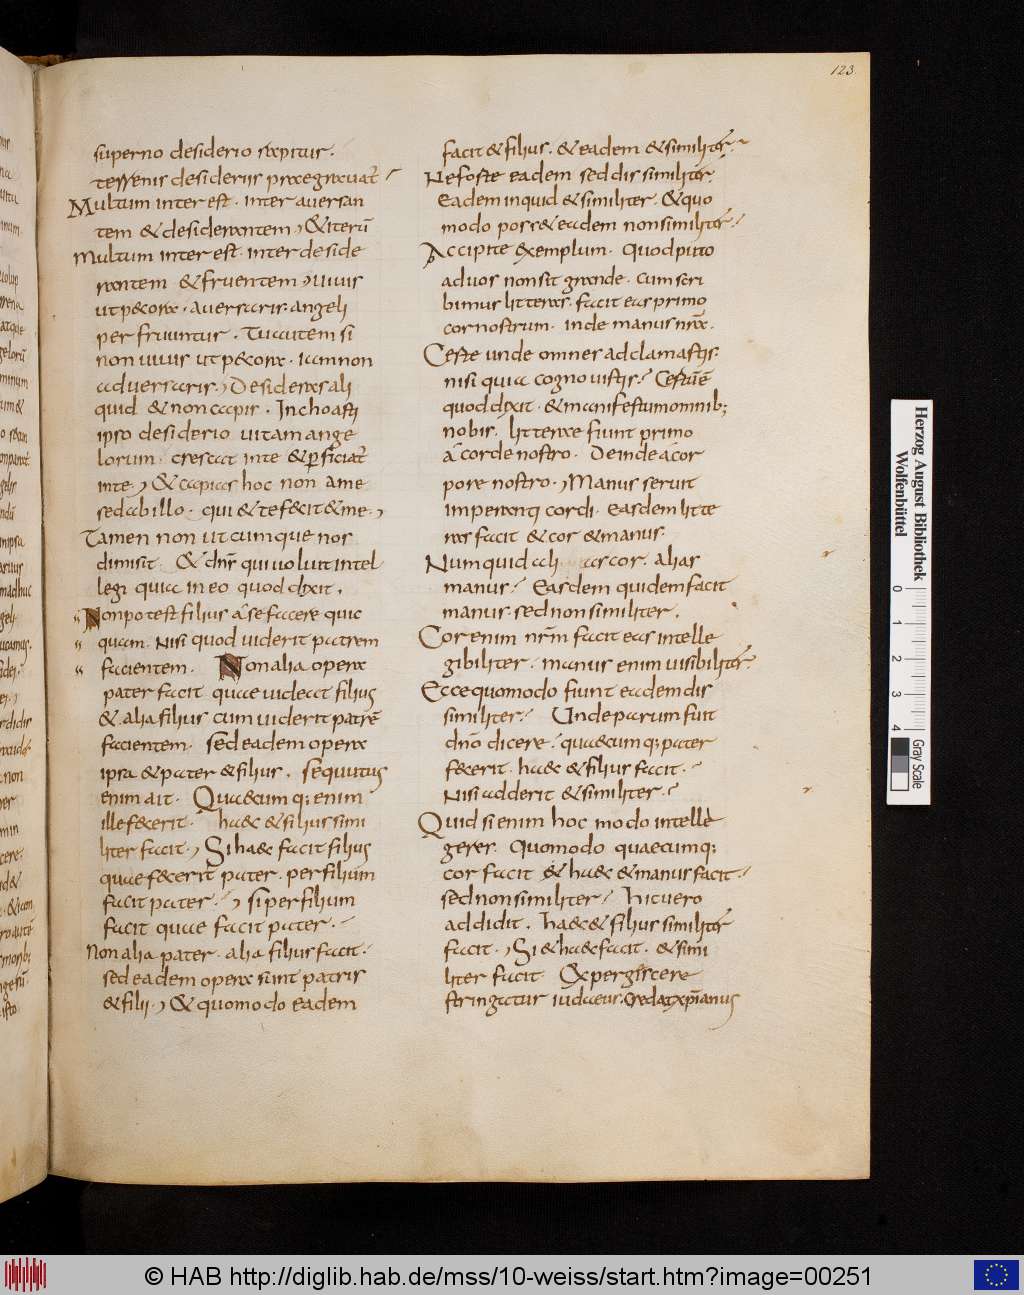 123
superno desiderio rapitur.
terrenis desideriis praegravat̄
Multum interest. inter aversan
tem & desiderantem, & iterū
Multum interest. inter deside
rantem & fruentem, vivis
ut p&cora. aversaris. angeli
perfruuntur. Tu autem si
non vivis ut p&cora. iam non
adversaris, Desideras ali
quid & non capis. Inchoasti
ipso desiderio vitam ange
lorum. crescat in te & p̄ficiat̄
in te, & capias hoc non a me
sed ab illo. qui & te fecit & me,
Tamen non utcumque nos
dimisit. & dn̄s qui voluit intel
legi quia in eo quod dixit.
Non potest filius a se facere quic
quam. Nisi quod viderit patrem
facientem. Non alia opera
pater facit quae videat filius
&. alia filius cum viderit patrē
facientem. Sed eadem opera
ipsa & pater & filius. sequitur
enim ait. Quaecumq; enim
ille fecerit. haec & filius simi
liter facit., Si haec facit filius
quae fecerit pater. per filium
facit pater., si per filium
facit quae facit pater.
Non alia pater. alia filius facit.
sed eadem opera sunt patris
& filii., & quomodo eadem
facit & filius. & eadem & similiter.
Ne forte eadem sed dissimiliter.
Eadem inquid & similiter. & quo
modo poss& eadem non similiter.
Accipite exemplum. Quod puto
ad vos non sit grande. Cum scri
bimus litteras. facit eas primo
cor nostrum. inde manus nr̄a.
Certe unde omnes adclamastis.
nisi quia cognovistis. Certū ē
quod dixit. & manifestum omnib;
nobis. litterae fiunt primo
a corde nostro. Deinde a cor
pore nostro., Manus servit
imperanti cordi. Easdem litte
ras facit & cor & manus.
Numquid ali as cor. alias
manus. Easdem quidem facit
manus. sed non similiter.
Cor enim nr̄m facit eas intelle
gibiliter. manus enim visibiliter.
Ecce quomodo fiunt eadem dis
similiter. Unde parum fuit
dn̄o dicere. quaecumq; pater
fecerit. haec & filius facit.
Nisi adderit & similiter.
Quid si enim hoc modo intelle
geres. Quomodo quaecumq;
cor facit & haec & manus facit.
sed non similiter. Hic vero
addidit. haec & filius similiter
facit., Si & haec facit. & simi
liter facit. Expergiscere
stringatur iudaeus. Credat xp̄ianus
Herzog August Bibliothek
Wolfenbüttel
0 1 2 3 4
Gray Scale
© HAB http://diglib.hab.de/mss/10-weiss/start.htm?image=00251